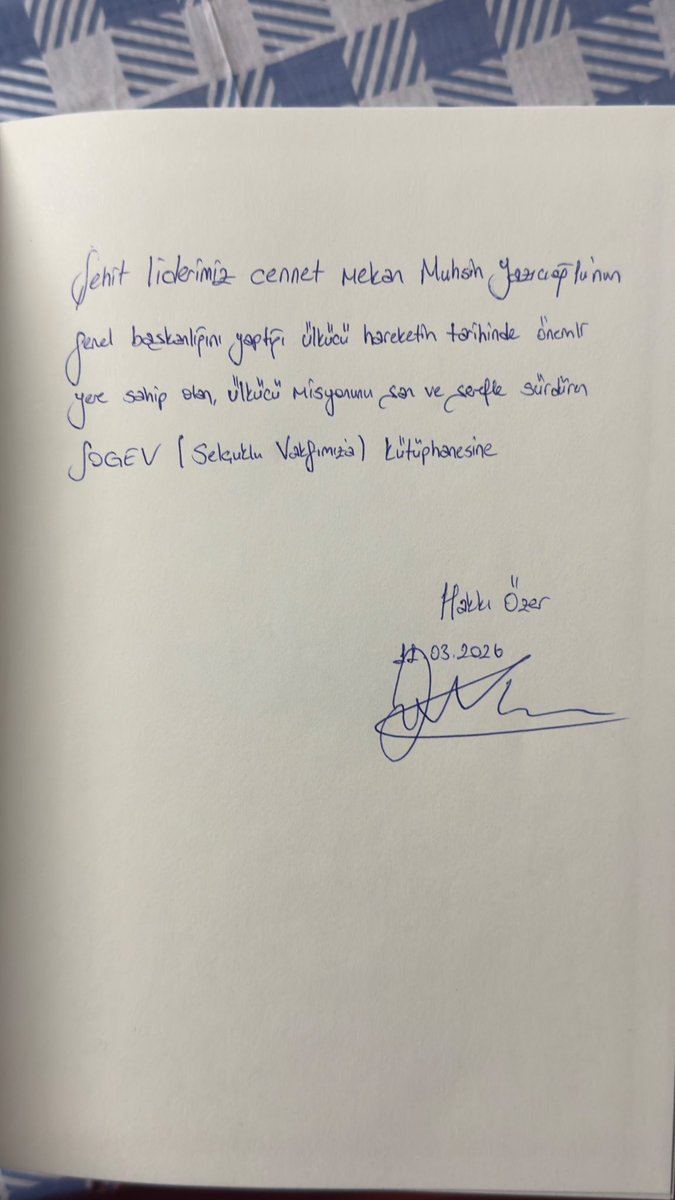 Şehit liderimiz cennet mekan Muhsin Yazıcıoğlu'nun
genel başkanlığını yaptığı ülkücü hareketin tarihinde önemli
yere sahip olan, ülkücü misyonunu şan ve şerefle sürdüren
SOGEV (Selçuklu Vakfımıza) kütüphanesine
Hakkı Özer
11.03.2026